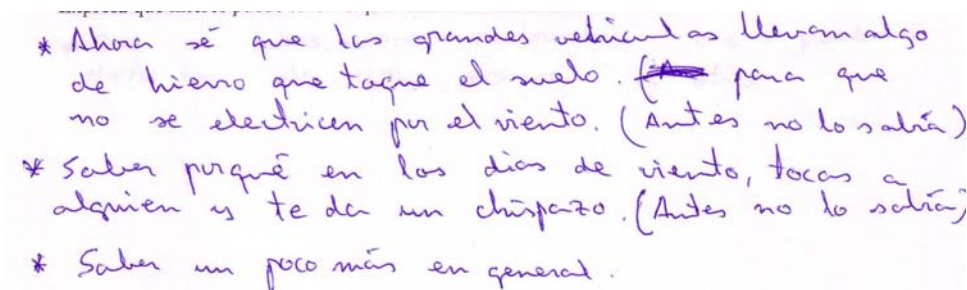 * Ahora sé que los grandes vehiculos llevan algo
de hierro que toque el suelo. para que
no se electricen por el viento. (Antes no lo sabía)
* Saber porqué en los dias de viento, tocas a
alguien y te da un chispazo. (Antes no lo sabía)
* Saber un poco más en general.